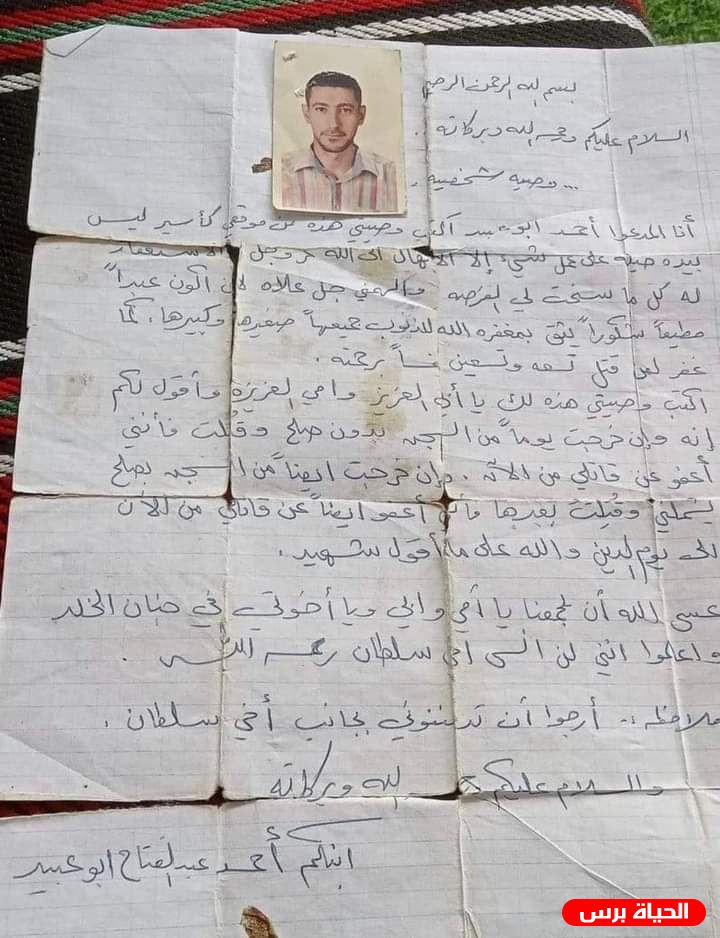 بسم الله الرحمن الرحيم
السلام عليكم ورحمة الله وبركاته .
... وصيه شخصيه .
أنا المدعوا أحمد ابو عبيد أكتب وصيتي هذه من موقعي كأسير ليس
بيده حيلة على عمل شيء إلا الابتهال الى الله عز وجل الاستغفار
له كل ما سنحت لي الفرصه وألهمني جل علاه لأن أكون عبداً
مطيعاً شكوراً يثق بمغفره الله للذنوب جميعهاً صغيرها وكبيرها، كما
غفر لمن قتل تسعه وتسعين نفساً برحمته .
اكتب وصيتي هذه لك يا أبي العزيز وامي العزيزة وأقول لكم
إنه وإن خرجت يوماً من السجن بدون صلح وقُتلت فأنني
أعفو عن قاتلي من الآن . وإن خرجت ايضاً من السجن بصلح
يشملني وقُتلت بعدها فأني أعفو ايضاً عن قاتلي من الآن
الى يوم الدين والله على ما أقول شهيد .
عسى الله أن يجمعنا يا أمي وابي ويا أخوتي في جنان الخلد
واعلموا انني لن انسى اخي سلطان رحمه الله .
ملاحظه :. أرجوا أن تدفنوني بجانب أخي سلطان .
والسلام عليكم الله وبركاته
ابنكم أحمد عبدالفتاح ابو عبيد
الحياة برس